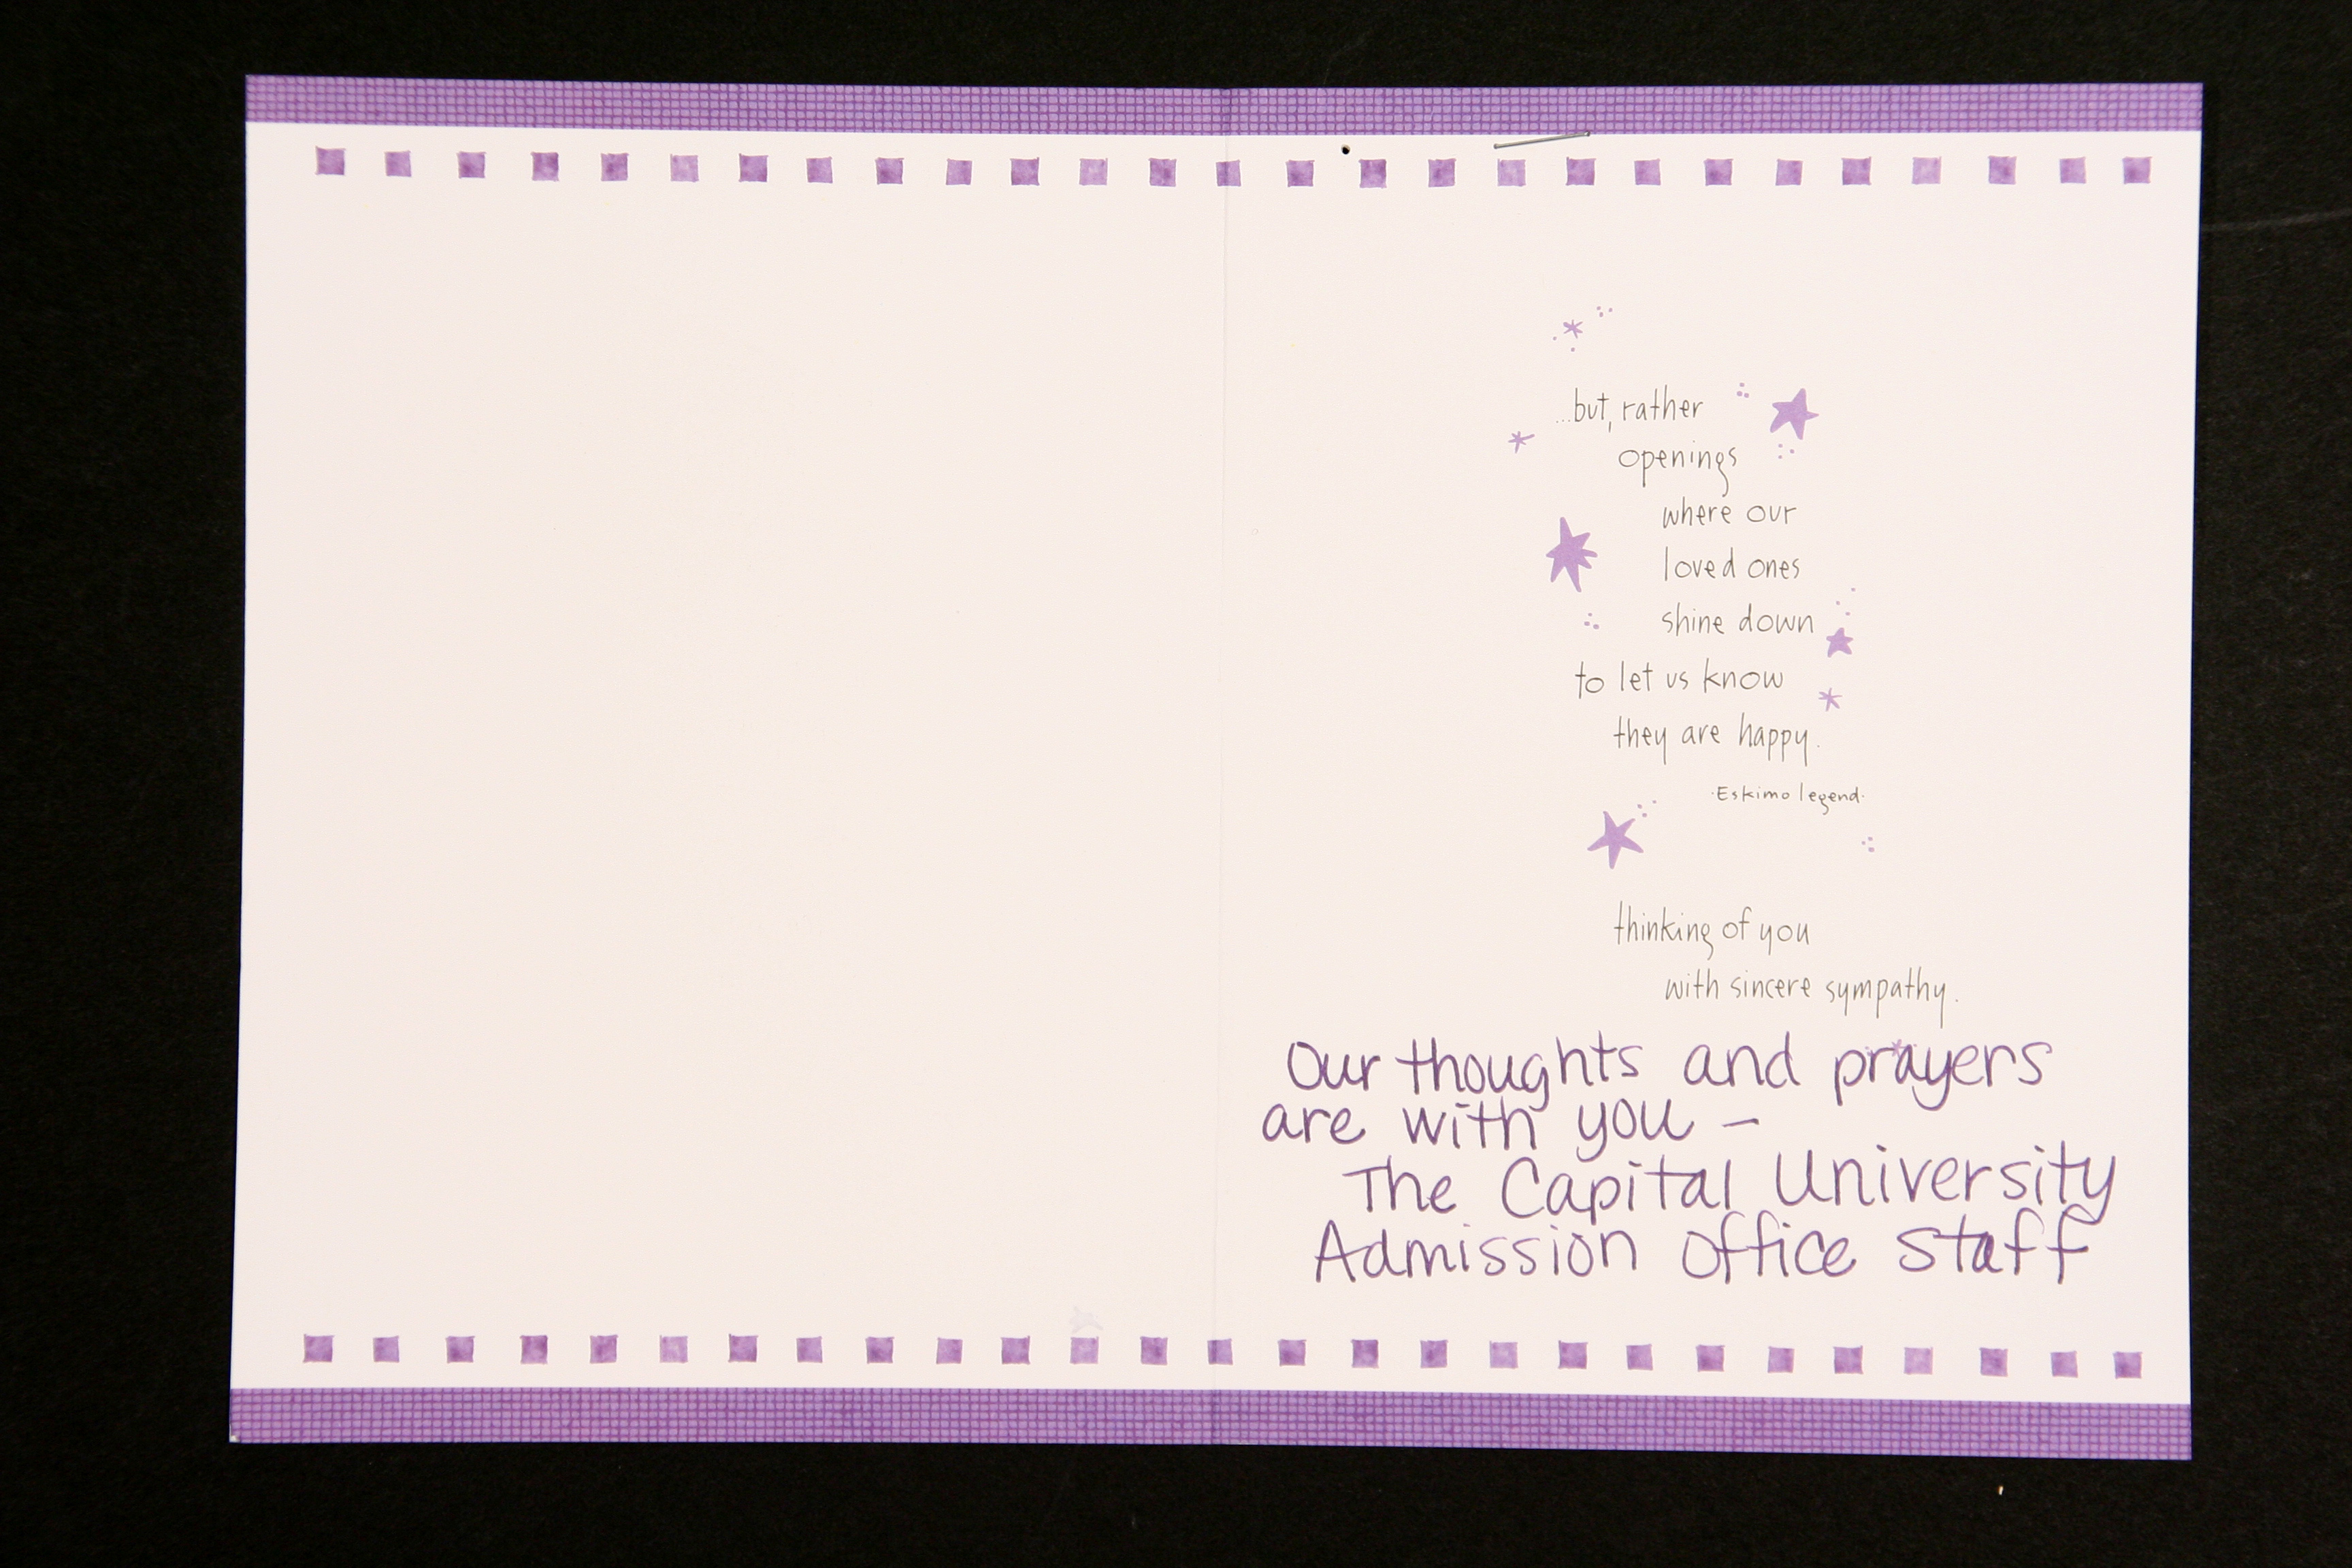 ...but, rather
openings
where our
loved ones
shine down
to let us know
they are happy.
·Eskimo legend·
thinking of you
with sincere sympathy.
Our thoughts and prayers
are with you –
The Capital University
Admission Office Staff